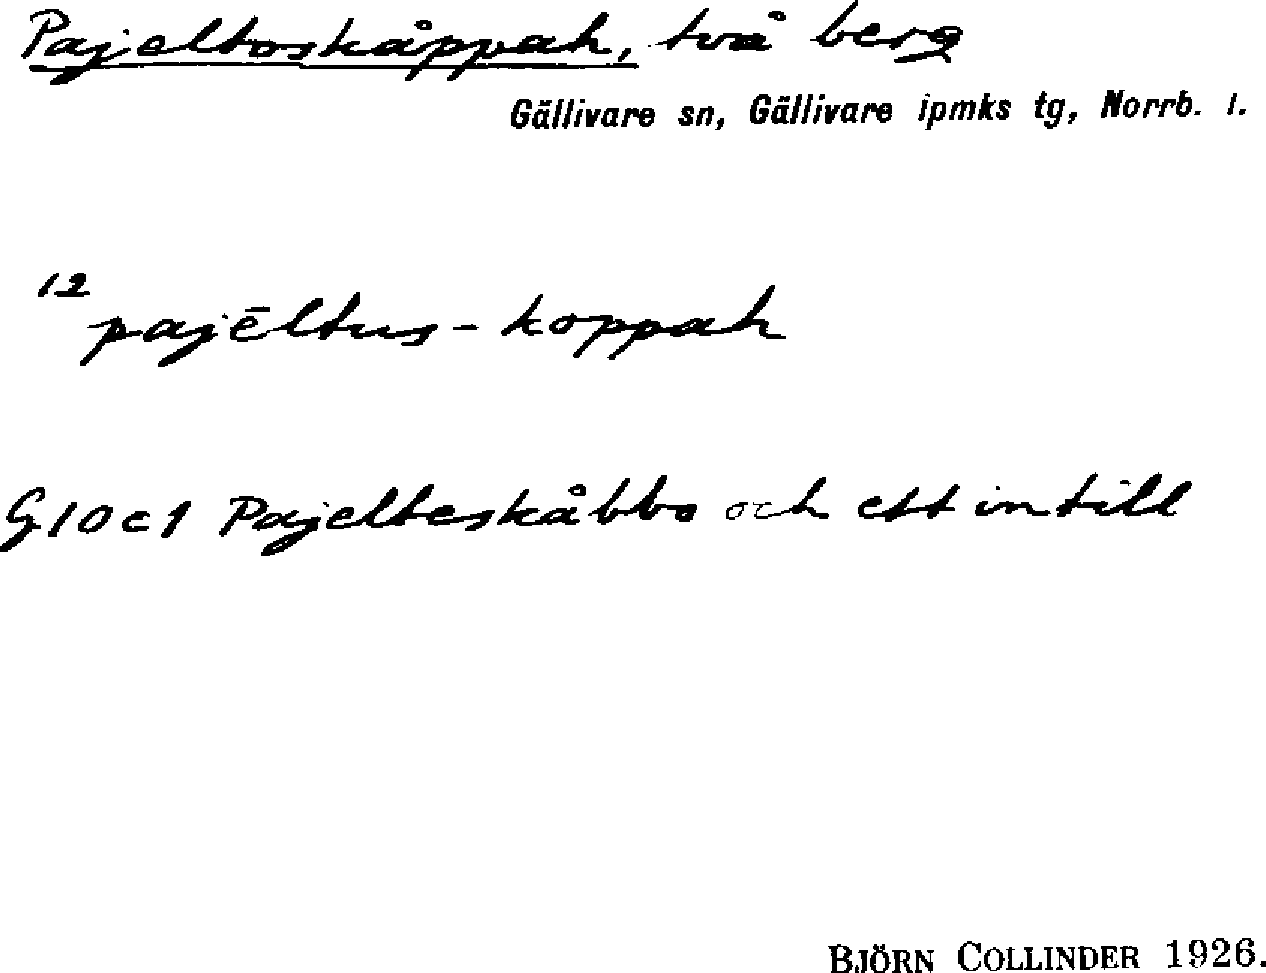 Pajeltoskåppah, två berg
Gällivare sn, Gällivare ipmks tg, Norrb. l.
12
pajēltus-koppah
G10c1 Pajelteskåbbo och ett intill
BJÖRN COLLINDER 1926.